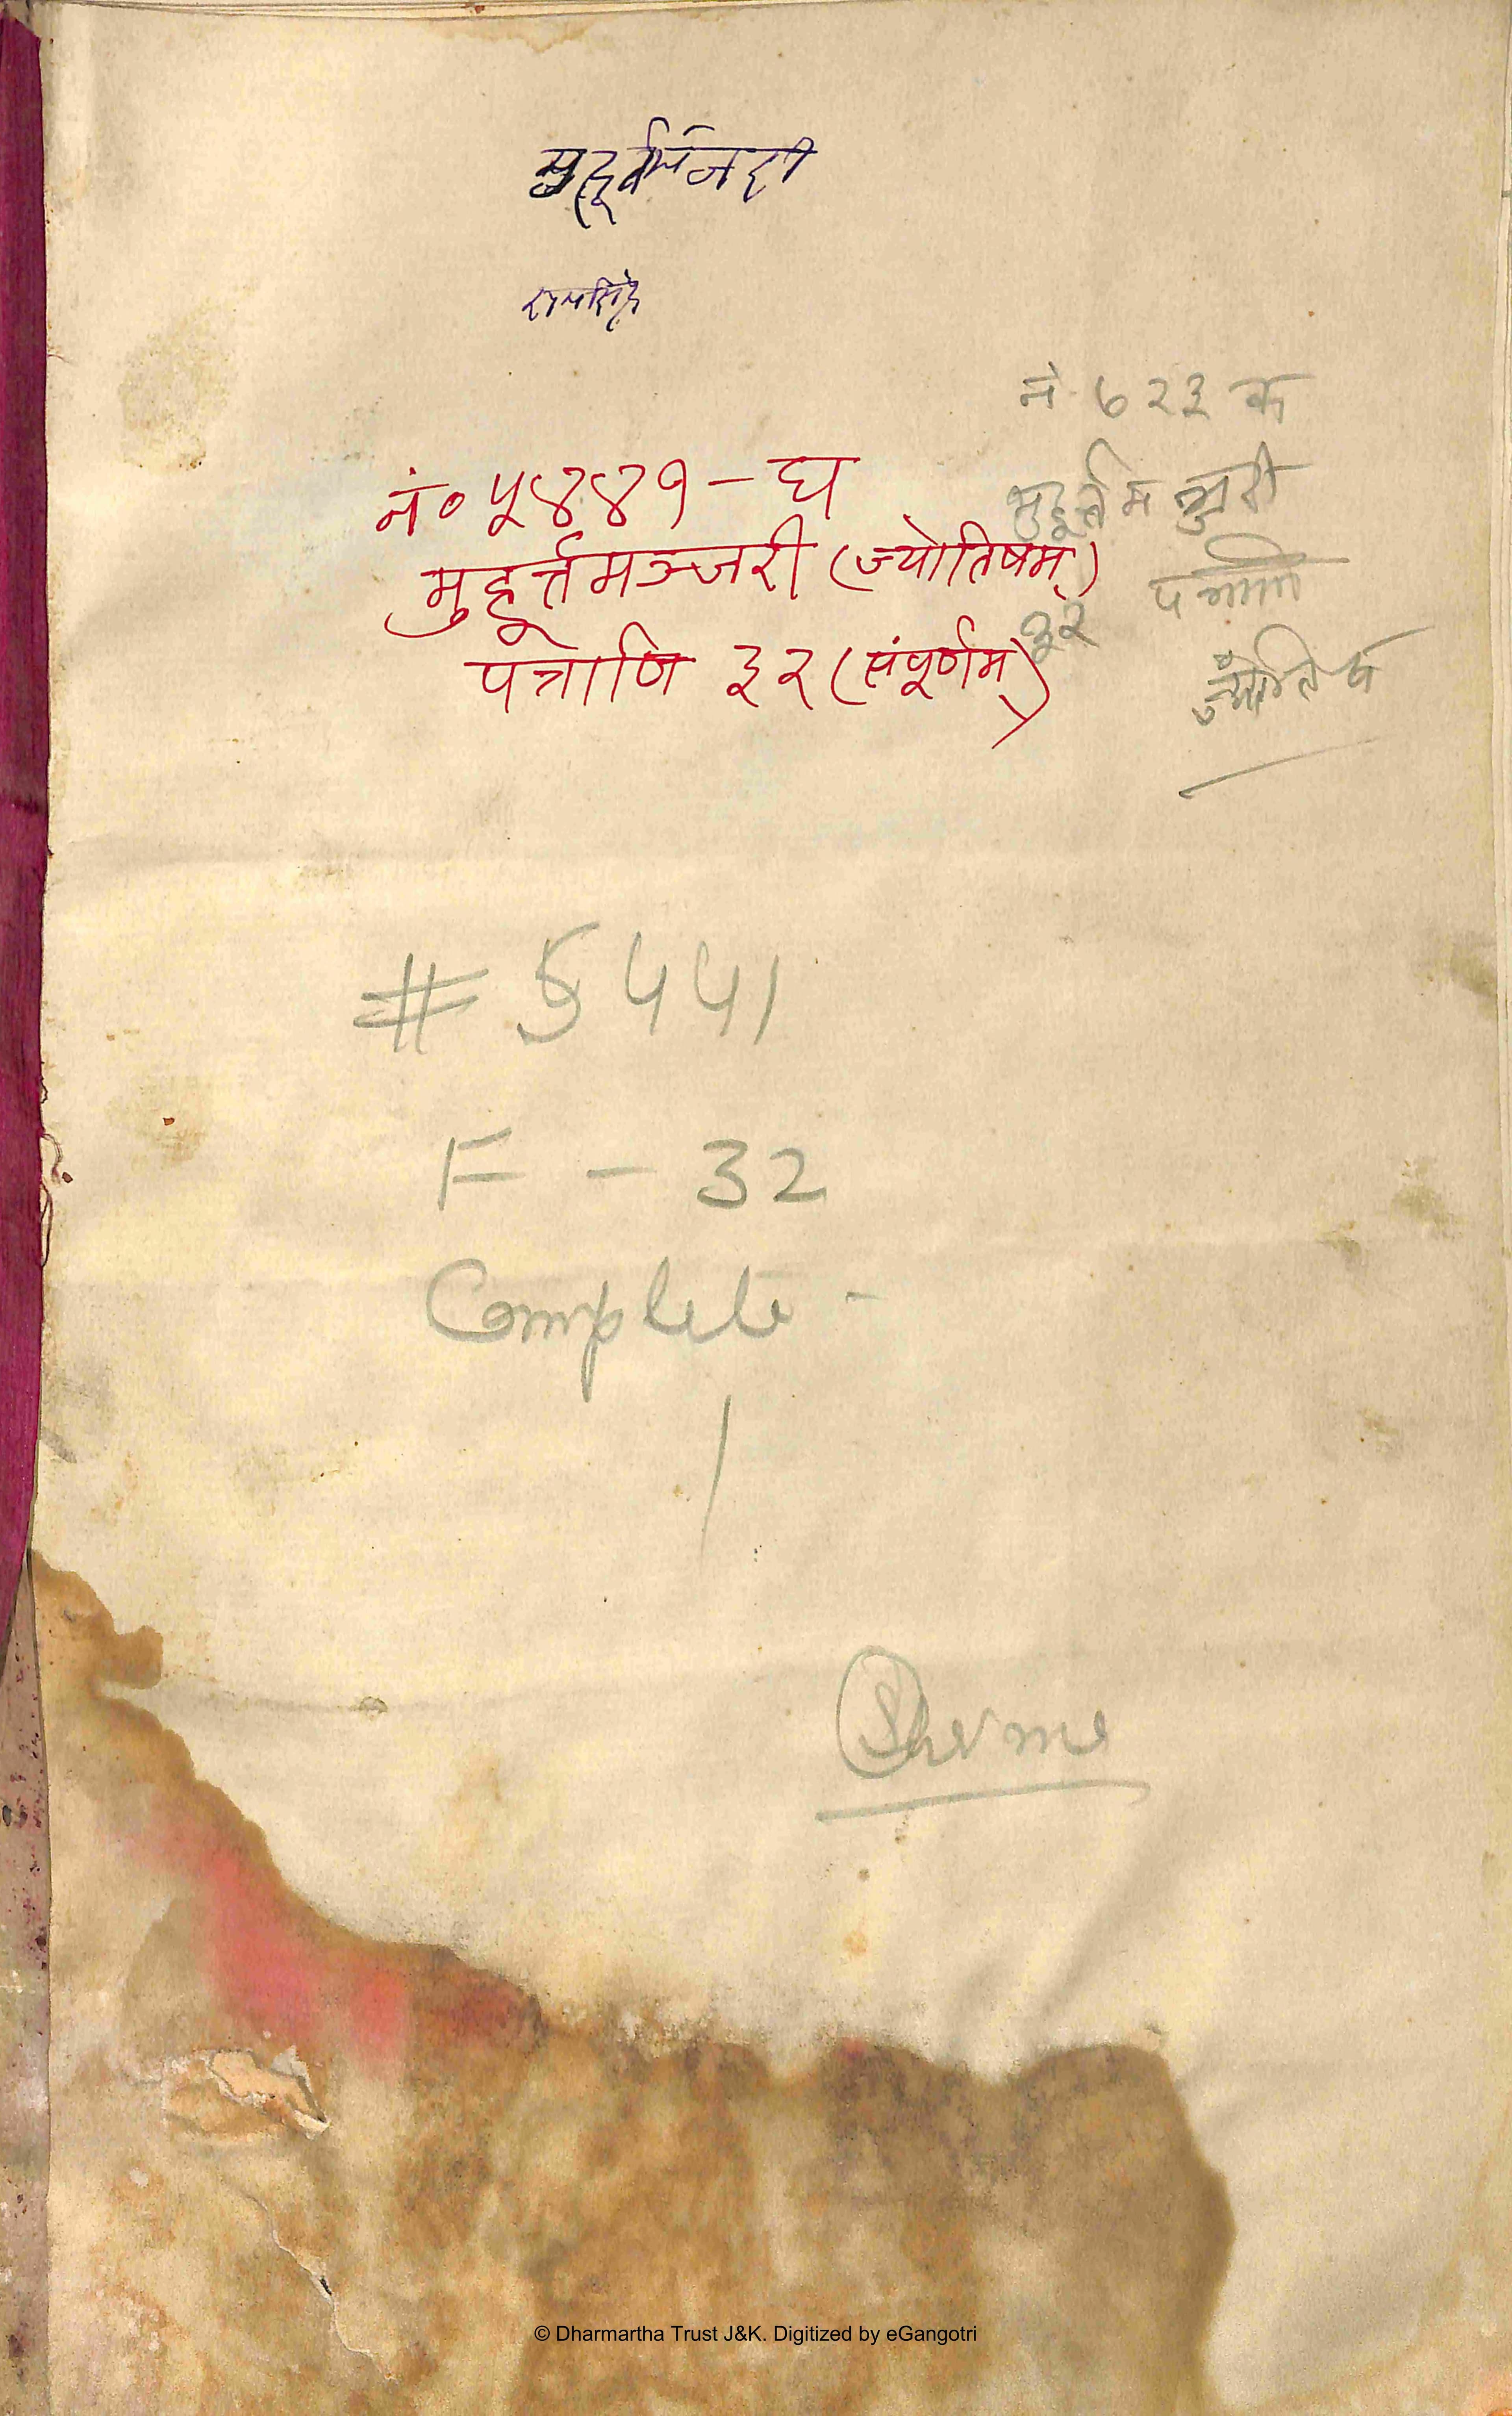 मुहूर्तमंजरी
रामसिंह
नं० ५४४१-घ
मुहूर्त्तमञ्जरी (ज्योतिषम्)
पत्राणि ३२ (संपूर्णम्)
नं ७२३ क
मुहूर्त्तमञ्जरी
३२ पत्राणि
ज्योतिष
# 5441
F - 32
Complete -
Sharma
© Dharmartha Trust J&K. Digitized by eGangotri